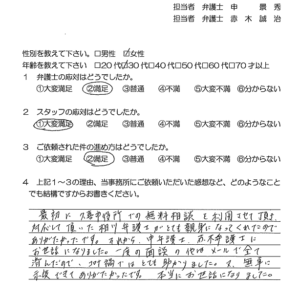 担当者 弁護士 申 景秀
担当者 弁護士 赤木誠治
性別を教えて下さい。□男性 ☑女性
年齢を教えて下さい □20代☑30代□40代□50代□60代□70才以上
1 弁護士の応対はどうでしたか。
①大変満足 ②満足 ③普通 ④不満 ⑤大変不満 ⑥分からない
2 スタッフの応対はどうでしたか。
①大変満足 ②満足 ③普通 ④不満 ⑤大変不満 ⑥分からない
3 ご依頼された件の進め方はどうでしたか。
①大変満足 ②満足 ③普通 ④不満 ⑤大変不満 ⑥分からない
4 上記1～3の理由、当事務所にご依頼いただいた感想など、どのようなこと
でも結構ですからお書きください。
最初に 事務所での無料相談を利用させて頂き
対応して頂いた 弁護士がとても親身になってくれたので
ありがたかったです。それから、申弁護士、赤木弁護士に
お世話になりました。一度の面談の他はメールで全て
済んだので、 とても助かりました。無事に
ありがたかったです。本当にお世話になりました